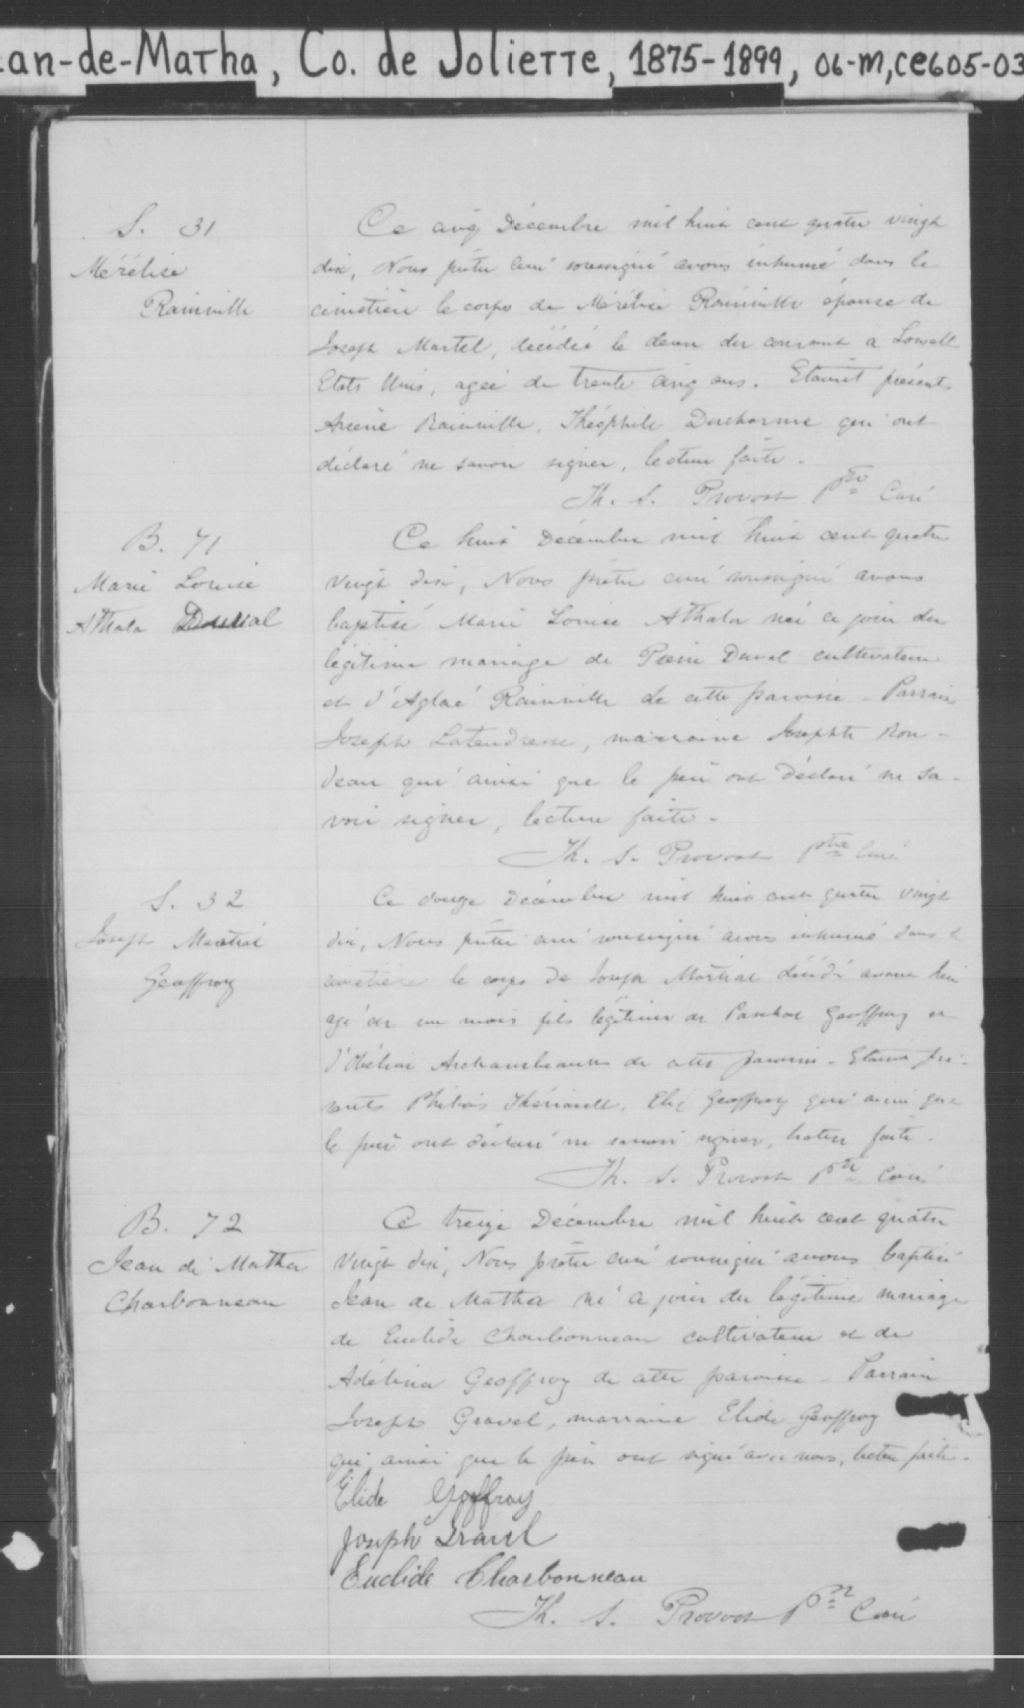 an-de-Matha, Co. de Joliette, 1875-1899, 06-M, CE605-03
S. 31
Mérélise
Rainville
Ce cinq Décembre mil huit cent quatre vingt
dix, Nous prêtre curé soussigné avons inhumé dans le
cimetière le corps de Mérélise Rainville épouse de
Joseph Martel, décédée le deux du courant à Lowell
Etats Unis, agée de trente cinq ans. Etaient présents
Arsène Rainville, Théophile Ducharme qui ont
déclaré ne savoir signer, lecture faite.
Th. S. Provost Ptre Curé
B. 71
Marie Louise
Athala Duval
Ce huit Décembre mil huit cent quatre
vingt dix, Nous prêtre curé soussigné avons
baptisé Marie Louise Athala née ce jour du
légitime mariage de Pierre Duval cultivateur
et d'Aglaé Rainville de cette paroisse - Parrain
Joseph Latendresse, marraine Josephte Ron-
deau qui ainsi que le père ont déclaré ne sa-
voir signer, lecture faite -
Th. S. Provost Ptre Curé
S. 32
Joseph Martial
Geoffroy
Ce douze Décembre mil huit cent quatre vingt
dix, Nous prêtre curé soussigné avons inhumé dans le
cimetière le corps de Joseph Martial décédé avant hier
agé de un mois fils légitime de Geoffroy et
d' Archambault de cette paroisse - Etaient pré-
sents Thériault, Geoffroy qui ainsi que
le père ont déclaré ne savoir signer, lecture faite -
Th. S. Provost Ptre Curé
B. 72
Jean de Matha
Charbonneau
Ce treize Décembre mil huit cent quatre
vingt dix, Nous prêtre curé soussigné avons baptisé
Jean de Matha né ce jour du légitime mariage
de Euclide Charbonneau cultivateur et de
Adélina Geoffroy de cette paroisse - Parrain
Joseph Gravel, marraine Elide Geoffroy
qui ainsi que le père ont signé avec nous, lecture faite -
Elide Geoffroy
Joseph Gravel
Euclide Charbonneau
Th. S. Provost Ptre Curé